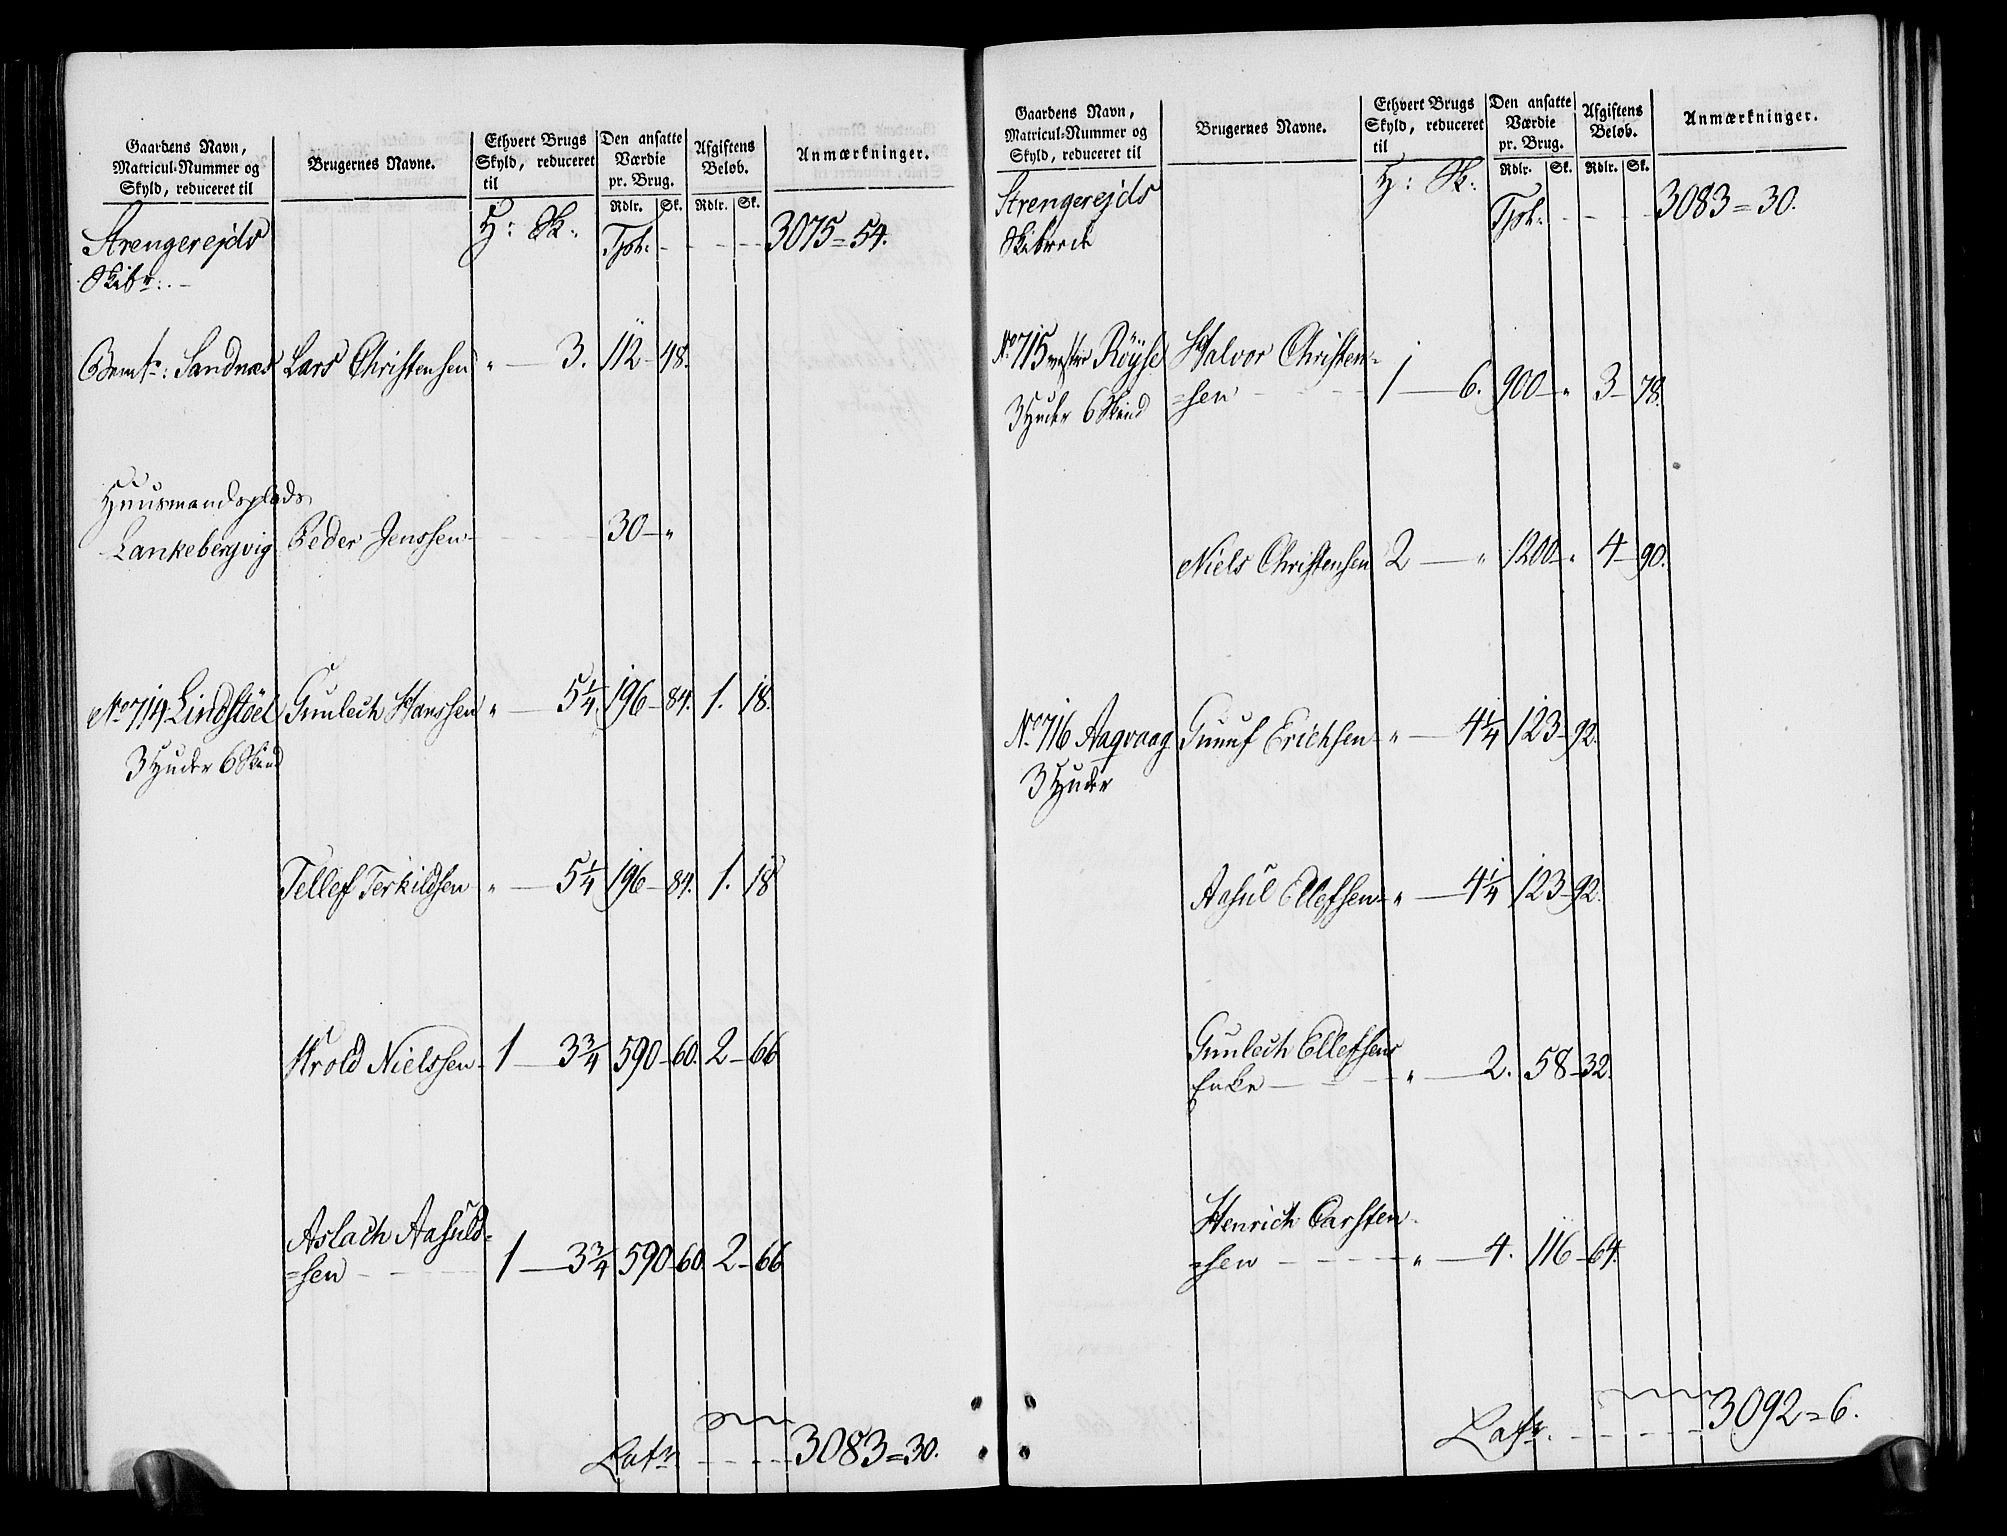 Gaardens Navn,
Matricul-Nummer og
Skyld, reduceret til
Brugernes Navne.
Ethvert Brugs
Skyld, reduceret
til
Den ansatte
Værdie
pr. Brug.
Rdlr. Sk.
Afgiftens
Beløb.
Rdlr. Sk.
Anmærkninger.
Strengerejds H: Sk: Tpt: - - - - 3075=54.
Skibr:. -
Bemte: Sandnæs Lars Christensen " — 3. 112 - 48.
Huusmandsplads
Lankebergvig Peder Jenssen - - - - 30 - "
No 714 Lindstöel Gunlech Hanssen " — 5 1/4. 196 - 84. 1. 18.
3 Huder 6 Skind
Tellef Terkildsen " — 5 1/4 196 - 84. 1. 18
Harold Nielssen - 1 — 3 3/4 590 - 60. 2 - 66
Aslach Aasuld-
=sen - - - - 1 — 3 3/4 590 - 60. 2 - 66
Latr. - - - - 3083=30.
Gaardens Navn,
Matricul-Nummer og
Skyld, reduceret til
Brugernes Navne.
Ethvert Brugs
Skyld, reduceret
til
Den ansatte
Værdie
pr. Brug.
Rdlr. Sk.
Afgiftens
Beløb.
Rdlr. Sk.
Anmærkninger.
Strengerejds H: Sk: Tpt: - - - - 3083=30.
Skibrede
No 715 westre Röyse Halvor Christen=
3 Huder 6 Skind =sen - - - 1 — 6. 900 - " 3 - 78.
Niels Christensen 2 — " 1200 - " 4 - 90.
No 716 Aaqvaag Gunuf Erichsen - " — 4 1/4 123 - 92.
3 Huder
Aasul Ellefsen - " — 4 1/4 123 - 92.
Gunlech Ellefsens
Enke - - - " — 2. 58 - 32.
Henrich Carsten-
=sen - - - - " — 4. 116 - 64.
Latr. - - - - 3092=6.